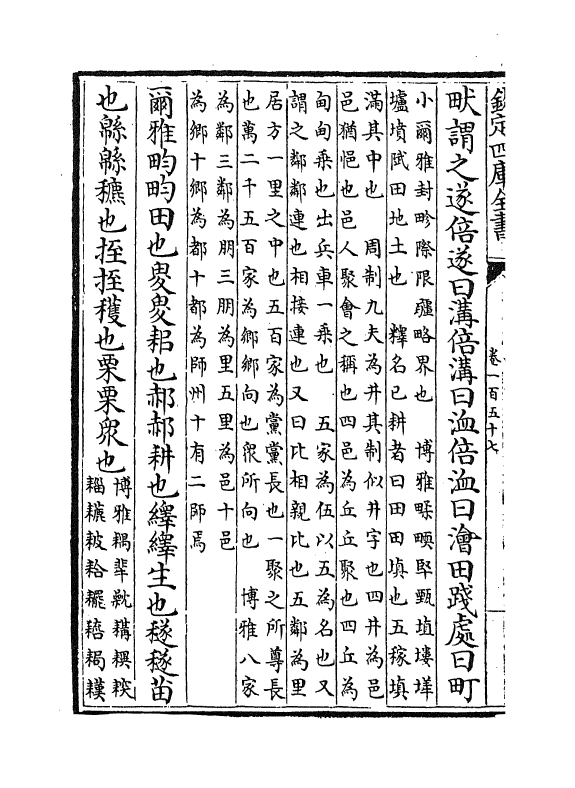 欽定四庫全書
卷一百五十七
畎謂之遂倍遂曰溝倍溝曰洫倍洫曰澮田踐處曰町
小爾雅封畛際限疆略界也 博雅㽥㽘堅甄埴塿垟
壚墳陚田地土也 釋名已耕者曰田田填也五稼填
滿其中也 周制九夫為井其制似井字也四井為邑
邑猶悒也邑人聚會之稱也四邑為丘丘聚也四丘為
甸甸乘也出兵車一乘也 五家為伍以五為名也又
謂之鄰鄰連也相接連也又曰比相親比也五鄰為里
居方一里之中也五百家為黨黨長也一聚之所尊長
也萬二千五百家為鄉鄉向也衆所向也 博雅八家
為鄰三鄰為朋三朋為里五里為邑十邑
為鄉十鄉為都十都為師州十有二師焉
爾雅畇畇田也畟畟耜也郝郝耕也繹繹生也穟穟苗
也緜緜穮也挃挃穫也栗栗衆也
博雅耦